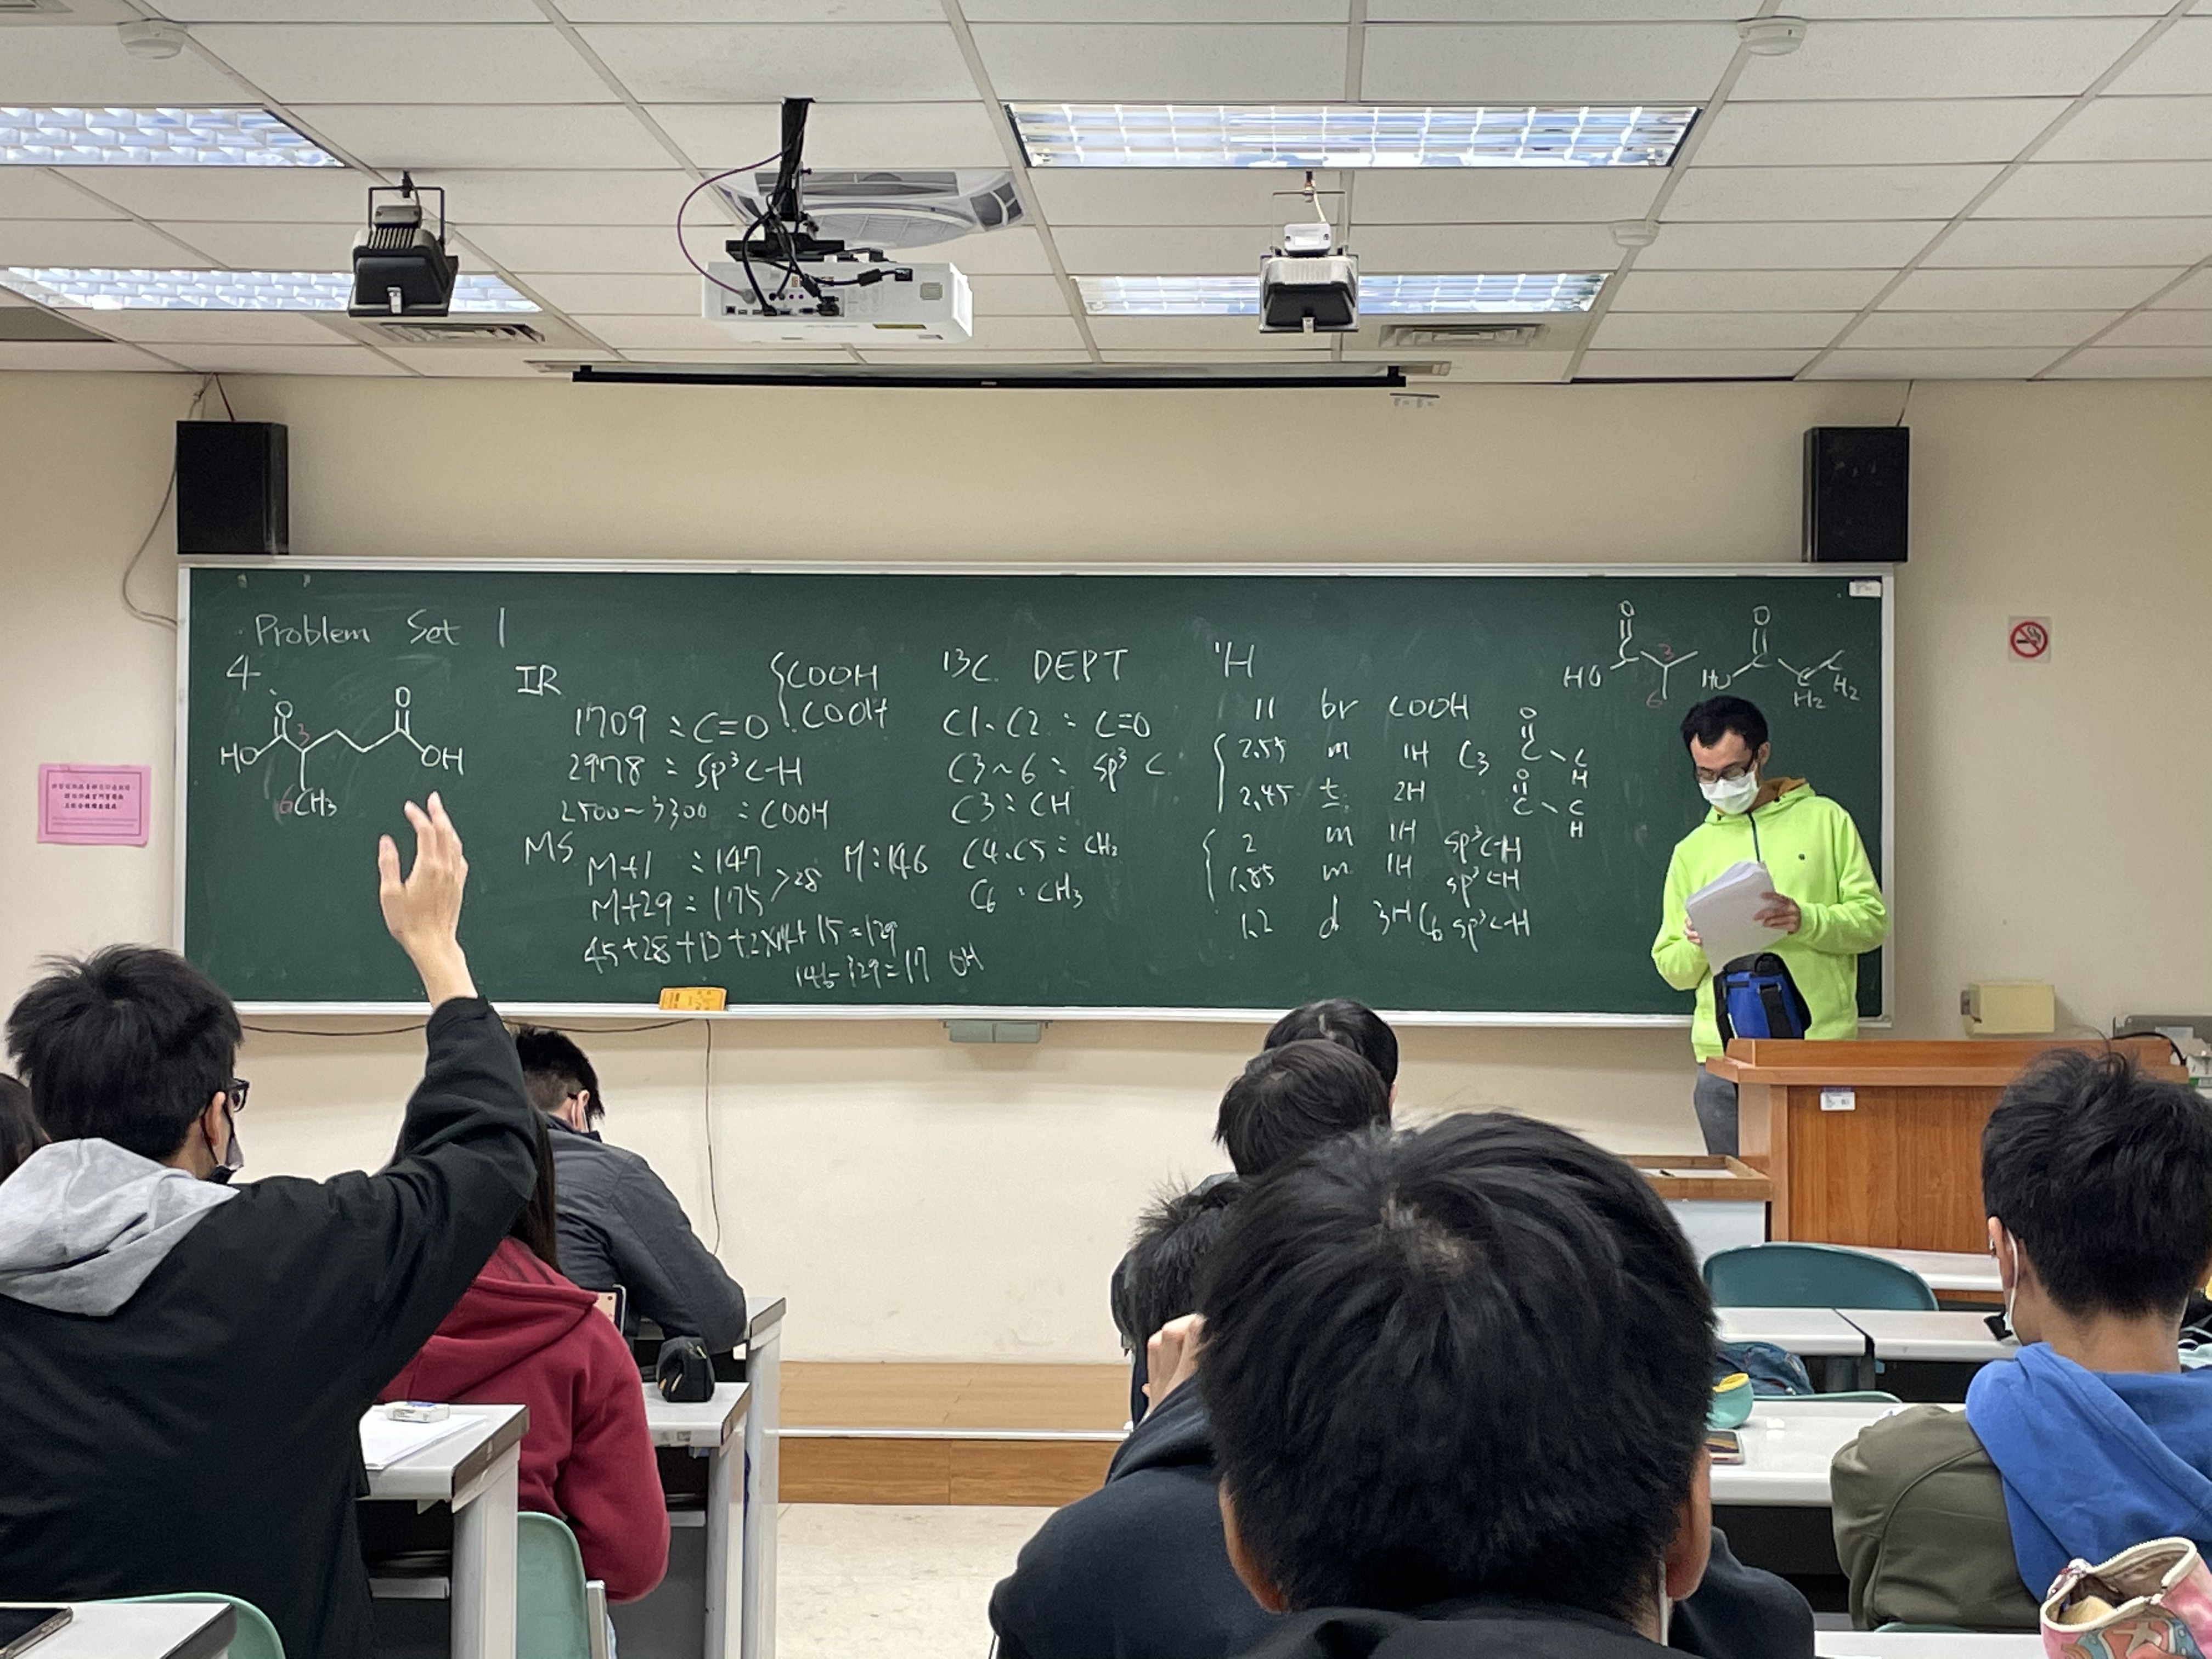 Problem Set 1
4.
O
O
HO
3
OH
6
CH3
IR
1709 : C=O
{COOH
COOH
2978 : sp³ C-H
2500~3300 : COOH
MS
M+1 : 147
M+29 : 175
>28
M:146
45+28+13+2×14+15=129
146-129=17 OH
13C DEPT
C1、C2 : C=O
C3~6 : sp³ C
C3 : CH
C4、C5 : CH2
C6 : CH3
¹H
11 br COOH
2.55 m 1H C3
2.45 t 2H
2 m 1H sp³C-H
1.85 m 1H sp³C-H
1.2 d 3H C6 sp³C-H
O
C
C
H
O
C
C
H
O
HO
C
3
6
O
HO
C
C
H2
C
H2